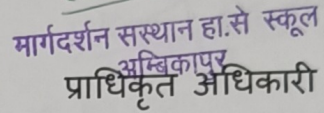 मार्गदर्शन सस्थान हा.से स्कूल
अम्बिकापुर
प्राधिकृत अधिकारी